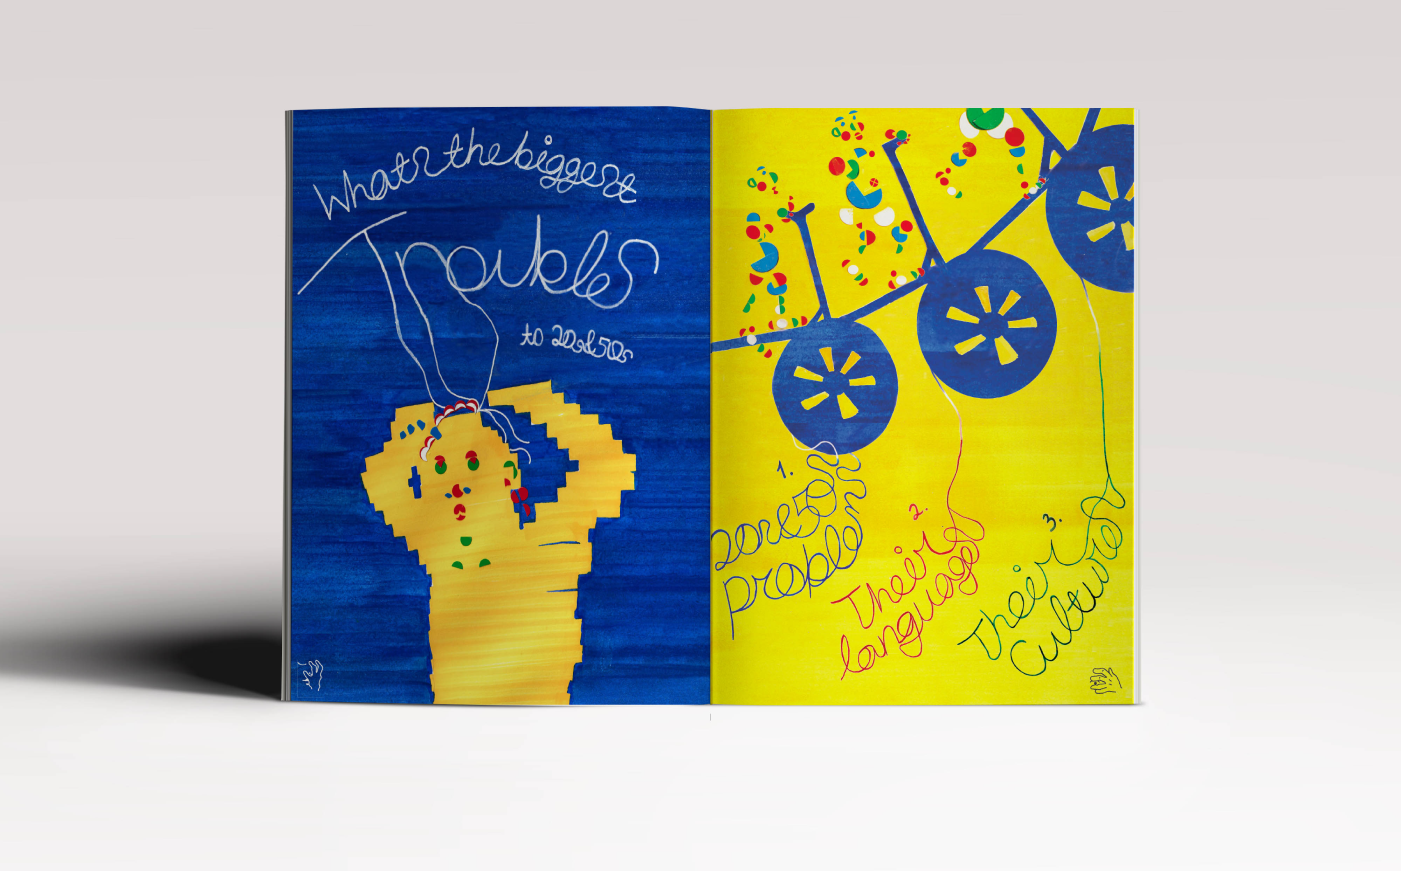 Whats the biggest
Troubles
to 20s&50s
1.
20s&50s
people
2.
Their
language
3.
Their
Culture